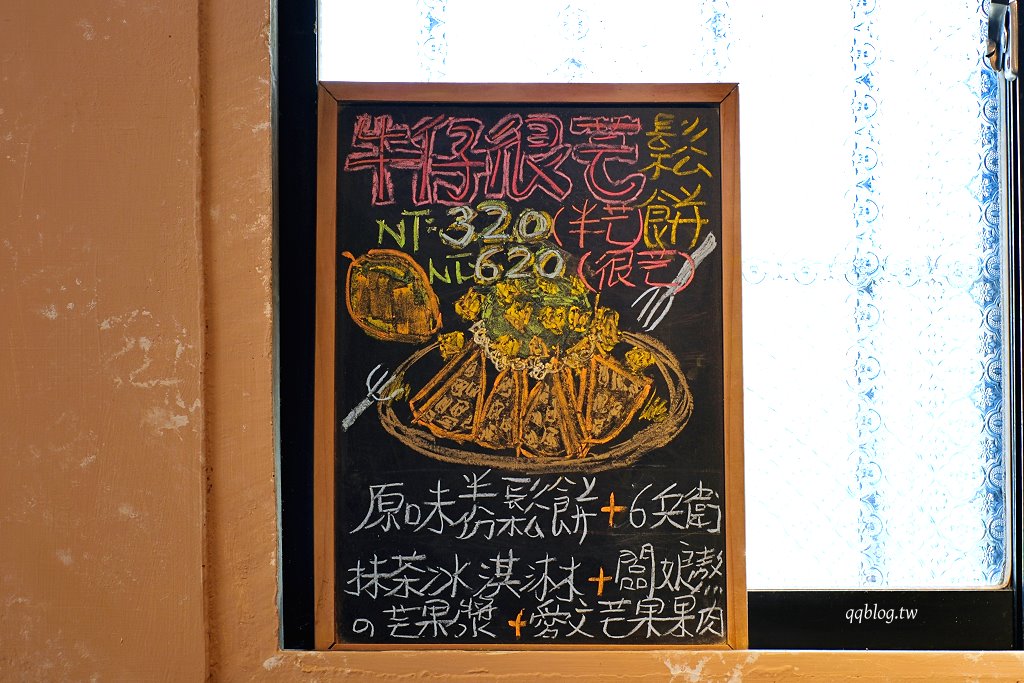 牛仔很芒鬆餅
NT:320(半芒)
NT:620(很芒)
原味半份鬆餅+6兵衛
抹茶冰淇淋+闆娘熬
の芒果漿+愛文芒果果肉
qqblog.tw